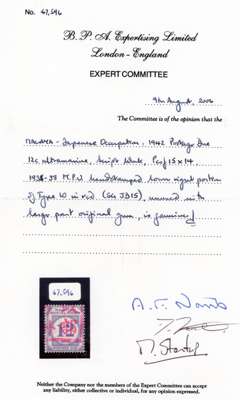 No. 67,596
B. P. A. Expertising Limited
London - England
EXPERT COMMITTEE
9th August, 2006
The Committee is of the opinion that the
MALAYA - Japanese Occupation, 1942 Postage Due
12c. ultramarine, Script Wmk, Perf 15 x 14
1936-38 M.P.U handstamped lower right portion
of Type 10 in red (SG JD15), unused with
large part original gum, is genuine.
67,596
A. F. Norris
Neither the Company nor the members of the Expert Committee can accept
any liability, either collective or individual, for any opinion expressed.